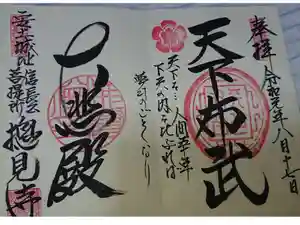 奉拝
令和元年八月十七日
天下布武
人間五十年
下天の内をくらぶれば
夢幻のごとくなり
大悲殿
安土城址
信長公
菩提所
摠見寺